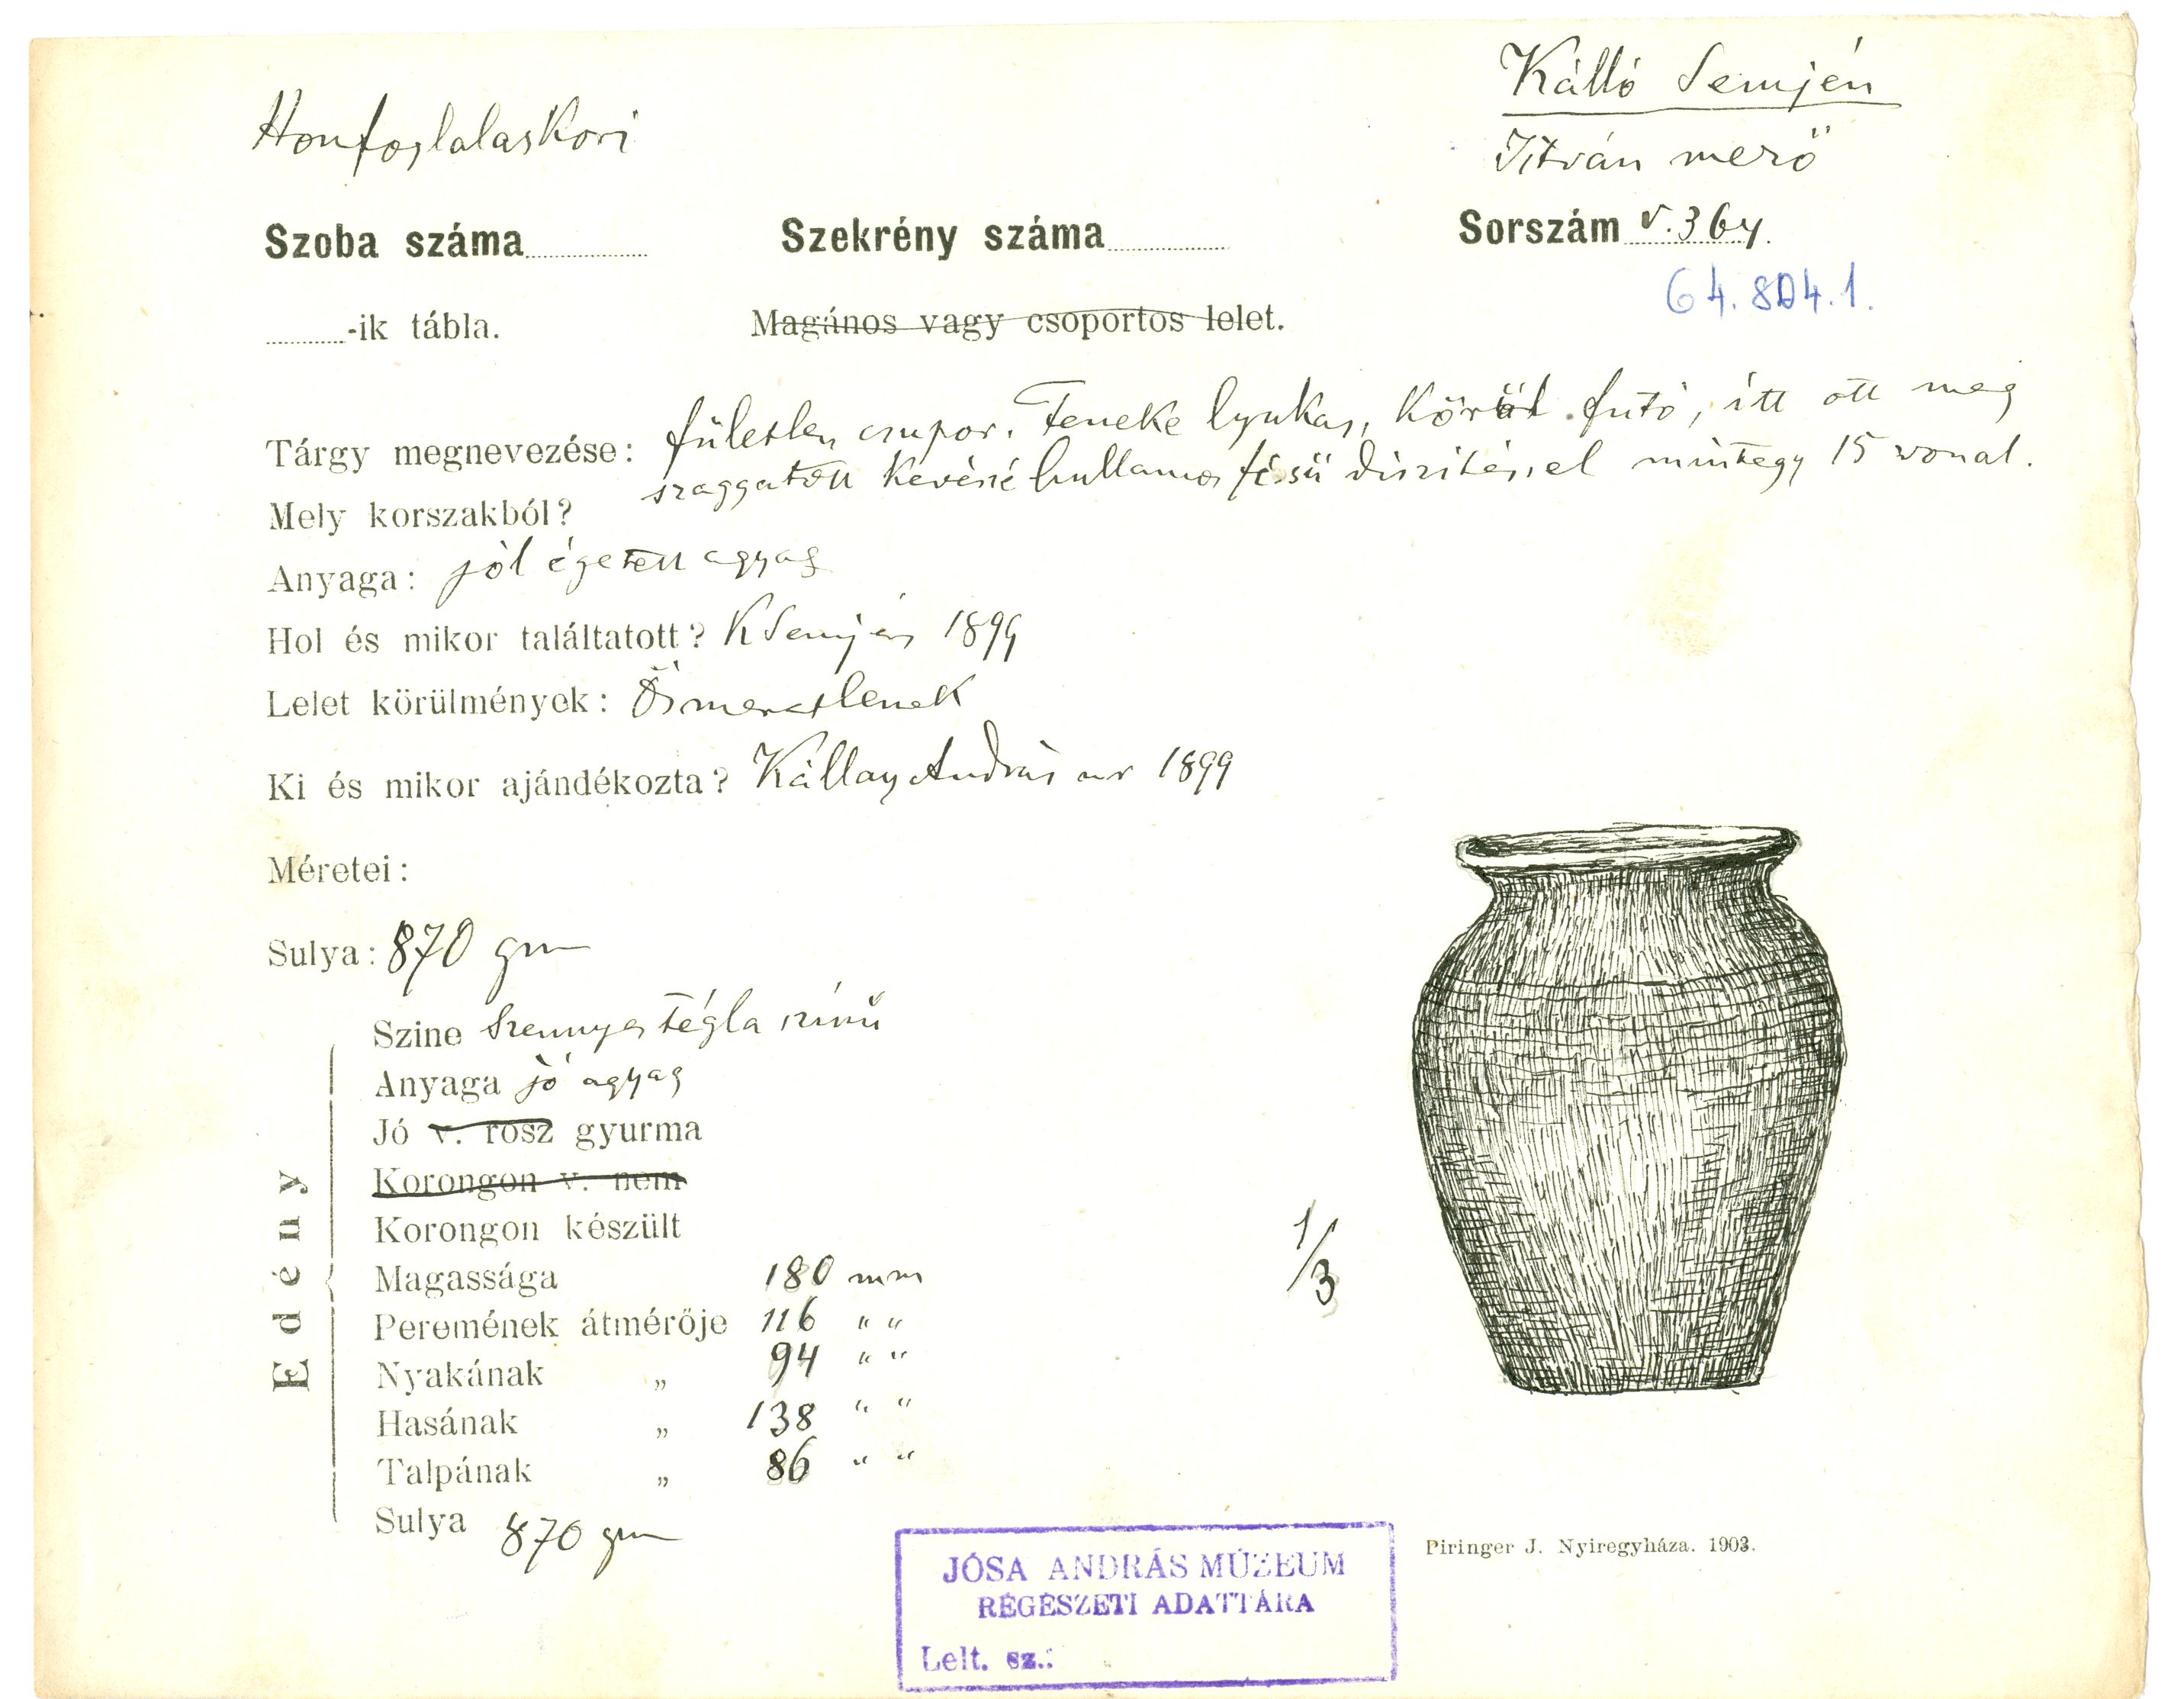 Kálló Semjén
Honfoglalaskori
István mező
Szoba száma
Szekrény száma
Sorszám V. 364.
64.804.1.
-ik tábla.
Magános vagy csoportos lelet.
Tárgy megnevezése: fületlen csupor. Feneke lyukas, Körül futó, itt ott meg
szaggatott kevéssé hullamos fésü diszitéssel mintegy 15 vonal.
Mely korszakból?
Anyaga: jól égetett agyag
Hol és mikor találtatott? KSemjén 1899
Lelet körülmények: Ösmeretlenek
Ki és mikor ajándékozta? Kállay András ur 1899
Méretei:
Sulya: 870 gm
Edény
Szine Szennyes tégla szinü
Anyaga jó agyag
Jó v. rosz gyurma
Korongon v. nem
Korongon készült
Magassága 180 mm
Peremének átmérője 116 " "
Nyakának „ 94 " "
Hasának „ 138 " "
Talpának „ 86 " "
Sulya 870 gm
1/3
Piringer J. Nyiregyháza. 1903.
JÓSA ANDRÁS MÚZEUM
RÉGÉSZETI ADATTÁRA
Lelt. sz.: